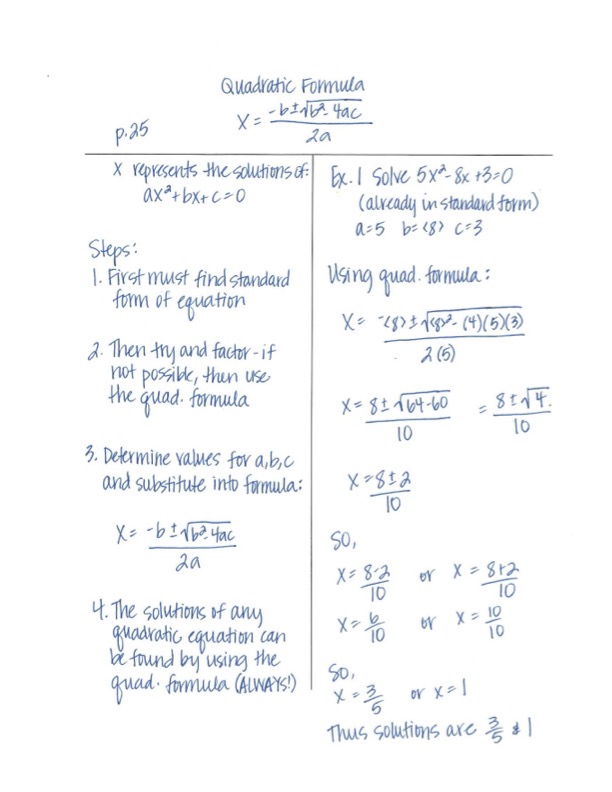 Quadratic Formula
p.25
x = -b±√b²-4ac / 2a
x represents the solutions of:
ax²+bx+c=0
Steps:
1. First must find standard
form of equation
2. Then try and factor - if
not possible, then use
the quad. formula
3. Determine values for a,b,c
and substitute into formula:
x = -b±√b²-4ac / 2a
4. The solutions of any
quadratic equation can
be found by using the
quad. formula (ALWAYS!)
Ex. 1 Solve 5x²-8x+3=0
(already in standard form)
a=5 b=(-8) c=3
Using quad. formula:
x = -(-8)±√(-8)²-(4)(5)(3) / 2(5)
x = 8±√64-60 / 10 = 8±√4 / 10
x = 8±2 / 10
So,
x = 8-2 / 10 or x = 8+2 / 10
x = 6/10 or x = 10/10
So,
x = 3/5 or x=1
Thus solutions are 3/5 & 1